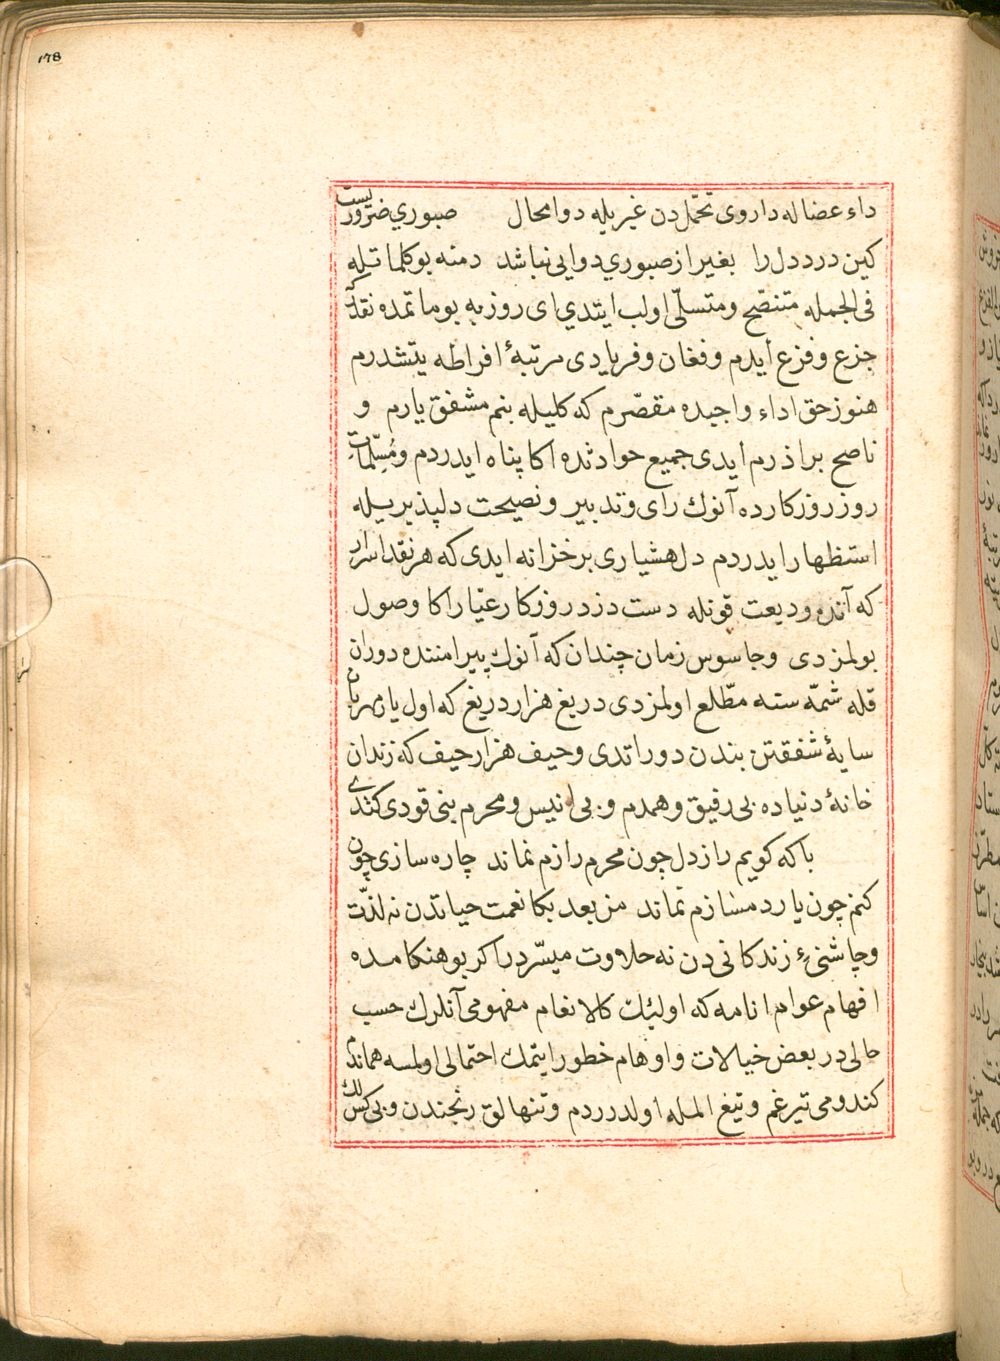 ١٧٨
داء عضاله داروی تحمّلدن غیریله دوا محال صبوری ضرورتست
کین درد دل را بغیر از صبوری دوایی نباشد دمنه بو کلماتله
فی الجمله متنصّح و متسلّی اولب ایتدی ای روزبه بو ماتمده نقدر
جزع و فزع ایدم و فغان و فریادی مرتبهٔ افراطه یتشدرم
هنوز حق اداء واجبده مقصّرم که کلیله بنم مشفق یارم و
ناصح براذرم ایدی جمیع حوادثده اکا پناه ایدردم و مسلّمات
روز روزکارده آنوك رای و تدبیر و نصیحت دلپذیریله
استظهار ایدردم دل هشیاری بر خزانه ایدی که هر نقد اسرار
که آنده ودیعت قونله دست دزد روزکار عیّار اکا وصول
بولمزدی و جاسوس زمان چندان که آنوك پیرامننده دوران
قله شمّه سنه مطّلع اولمزدی دریغ هزار دریغ که اول یار مهربان
سایهٔ شفقتن بندن دور اتدی و حیف هزار حیف که زندان
خانهٔ دنیاده بی رفیق و همدم و بی انیس و محرم بنی قودی کتدی
با که کویم راز دل چون محرم رازم نماند چاره سازی چون
کنم چون یار دمسازم نماند من بعد بکا نعمت حیاتدن نه لذّت
و چاشنیٔ زندکانی دن نه حلاوت میسّردر اکر بو هنکامده
افهام عوام انامه که اولئك کالانعام مفهومی آنلرك حسب
حالی در بعض خیالات و اوهام خطور ایتمك احتمالی اولمسه هماندم
کندومی تیر غم و تیغ المله اولدرردم و تنهالق رنجندن و بی کسلك